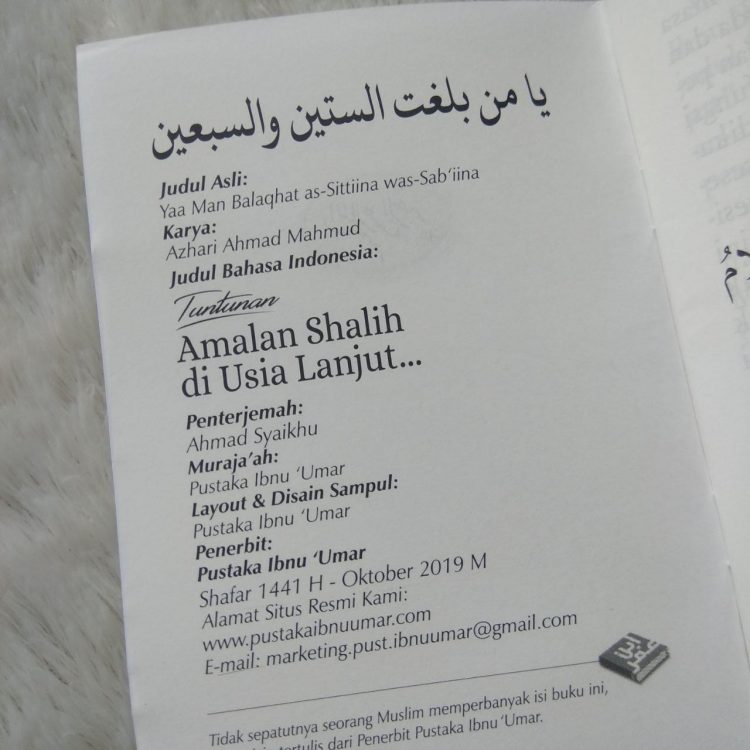 يا من بلغت الستين والسبعين
Judul Asli:
Yaa Man Balaqhat as-Sittiina was-Sab'iina
Karya:
Azhari Ahmad Mahmud
Judul Bahasa Indonesia:
Tuntunan
Amalan Shalih
di Usia Lanjut...
Penterjemah:
Ahmad Syaikhu
Muraja'ah:
Pustaka Ibnu 'Umar
Layout & Disain Sampul:
Pustaka Ibnu 'Umar
Penerbit:
Pustaka Ibnu 'Umar
Shafar 1441 H - Oktober 2019 M
Alamat Situs Resmi Kami:
www.pustakaibnuumar.com
E-mail: marketing.pust.ibnuumar@gmail.com
ابن عمر
Tidak sepatutnya seorang Muslim memperbanyak isi buku ini,
tertulis dari Penerbit Pustaka Ibnu 'Umar.